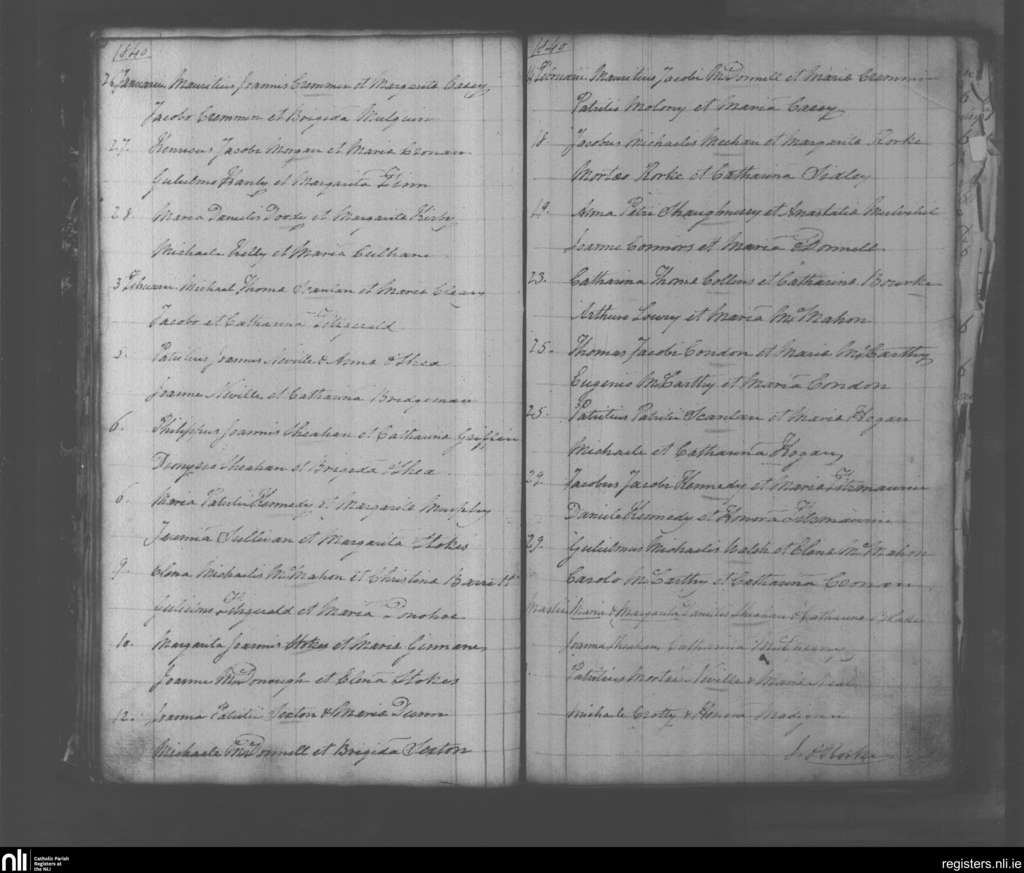 1840
26 Januarii Mauritius Joannis Cremmin et Margarita Casey
Jacobo Cremmin et Brigida Mulquin
27. Jacobi Morgan et Maria Cronan
Gulielmo Hanly et Margarita Flinn
28. Maria Danielis Doody et Margarita Kirby
Michaele et Maria Culhane
3 Februarii Michael Thoma Scanlan et Maria Cleary
Jacobo et Catharina Fitzgerald
5. Patritius Joannis Neville & Anna OShea
Joanne Neville et Catharina Bridgeman
6. Philippus Joannis Sheahan et Catharina Griffin
Dionysio Sheahan et Brigida OShea
6. Maria Patritii Kennedy et Margarita Murphy
Jeremia Sullivan et Margarita Stokes
9. Elena Michaelis McMahon et Christina Barrett
Gulielmo Fitzgerald et Maria Donohoe
10. Margarita Joannis Stokes et Maria
Joanne McDonough et Elena Stokes
12. Joanna Patritii Sexton & Maria Dunn
Michaele McDonnell et Brigida Sexton
1840
Februarii Mauritius Jacobi McDonnell et Maria Cremmin
Patritio Molony et Maria Casey
18. Jacobus Michaelis Meehan et Margarita Rorke
Morteo Rorke et Catharina
19. Anna Petri Shaughnessy et Anastatia
Joanne Connors et Maria ODonnell
23. Catharina Thoma Collins et Catharina Bourke
Arthuro Lowry et Maria McMahon
25. Thomas Jacobi Condon et Maria McCarthy
Eugenio McCarthy et Maria Condon
25. Patritius Patritii Scanlan et Maria Hogan
Michaele et Catharina Hogan
29. Jacobus Jacobi Kennedy et Maria Fitzmaurice
Daniele Kennedy et Honora Fitzmaurice
29. Gulielmus Michaelis Walsh et Elena McMahon
Carolo McCarthy et Catharina Cronan
Martii Maria & Margarita Danielis Sheahan & Catharina
Joanne Sheahan Catharina
Patritius Mortei Neville & Maria
Michaele Crotty & Honora Madigan
nli
Catholic Parish
Registers at
the NLI
registers.nli.ie